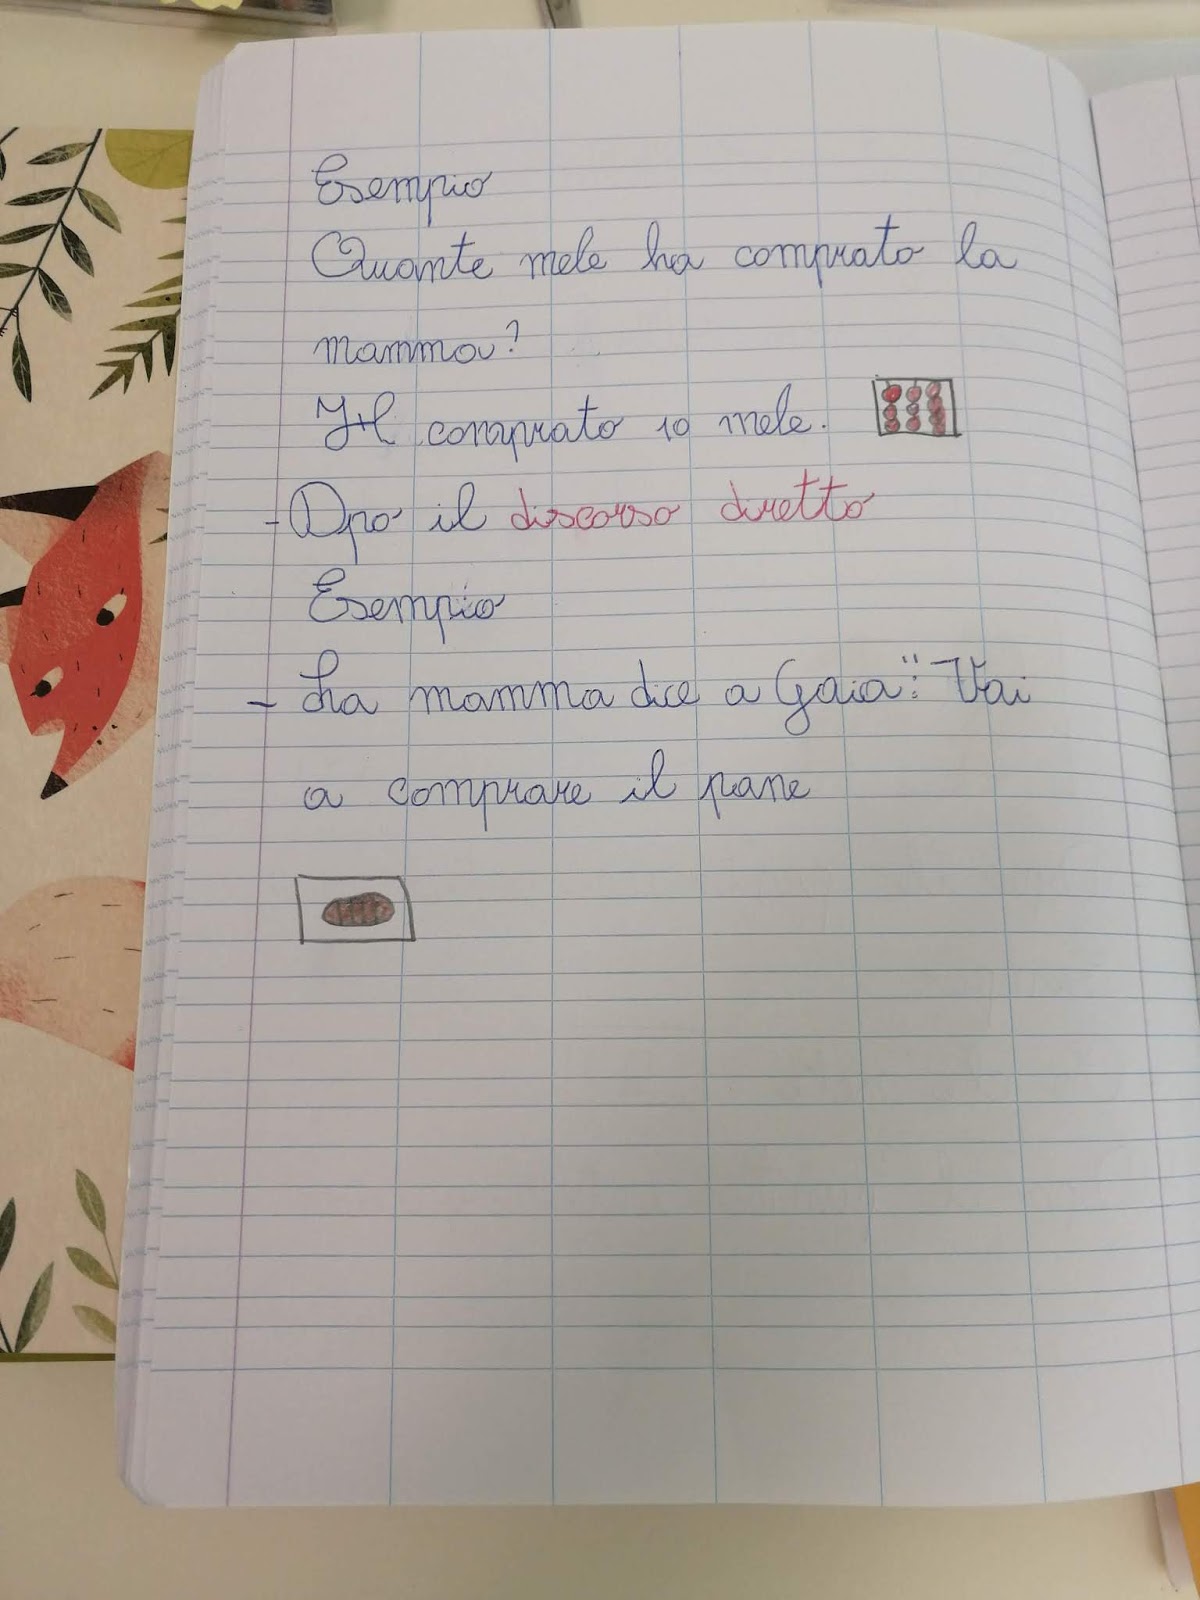 Esempio
Quante mele ha comprato la
mamma?
comprato 10 mele.
- Dpo il discorso diretto
Esempio
- La mamma dice a Gaia: "Vai
a comprare il pane